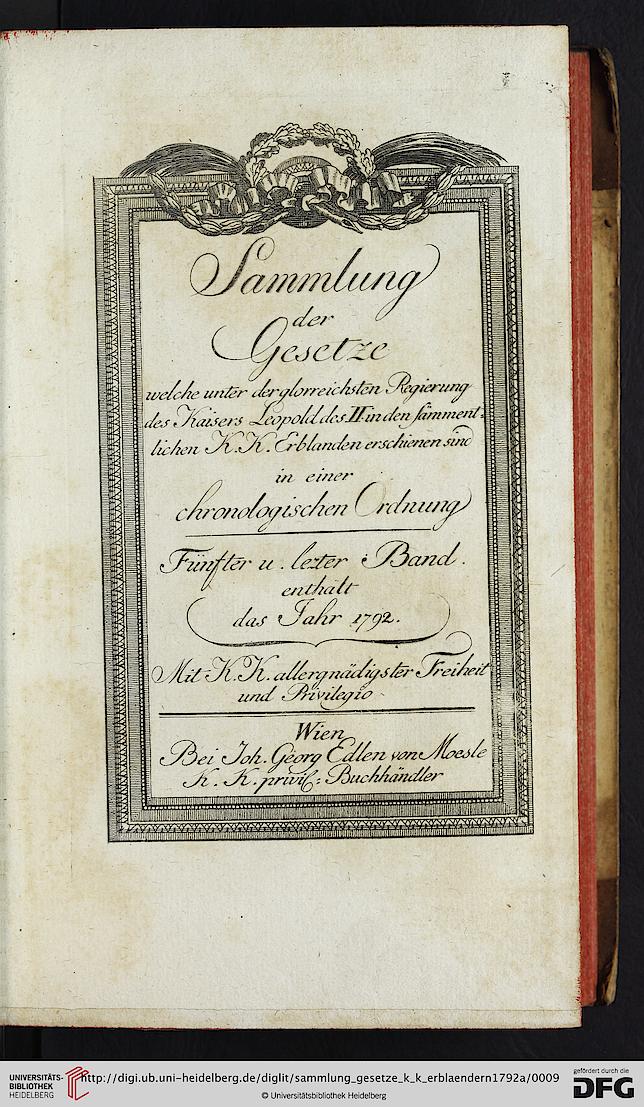 Sammlung
der
Gesetze
welche unter der glorreichsten Regierung
des Kaisers Leopold des II. in den sämment-
lichen K. K. Erblanden erschienen sind
in einer
chronologischen Ordnung
Fünfter u. lezter Band.
enthält
das Jahr 1792.
Mit K. K. allergnädigster Freiheit
und Privilegio
Wien
Bei Joh. Georg Edlen von Moesle
K. K. privil: Buchhändler
UNIVERSITÄTS-
BIBLIOTHEK
HEIDELBERG
http://digi.ub.uni-heidelberg.de/diglit/sammlung_gesetze_k_k_erblaendern1792a/0009
© Universitätsbibliothek Heidelberg
gefördert durch die
DFG